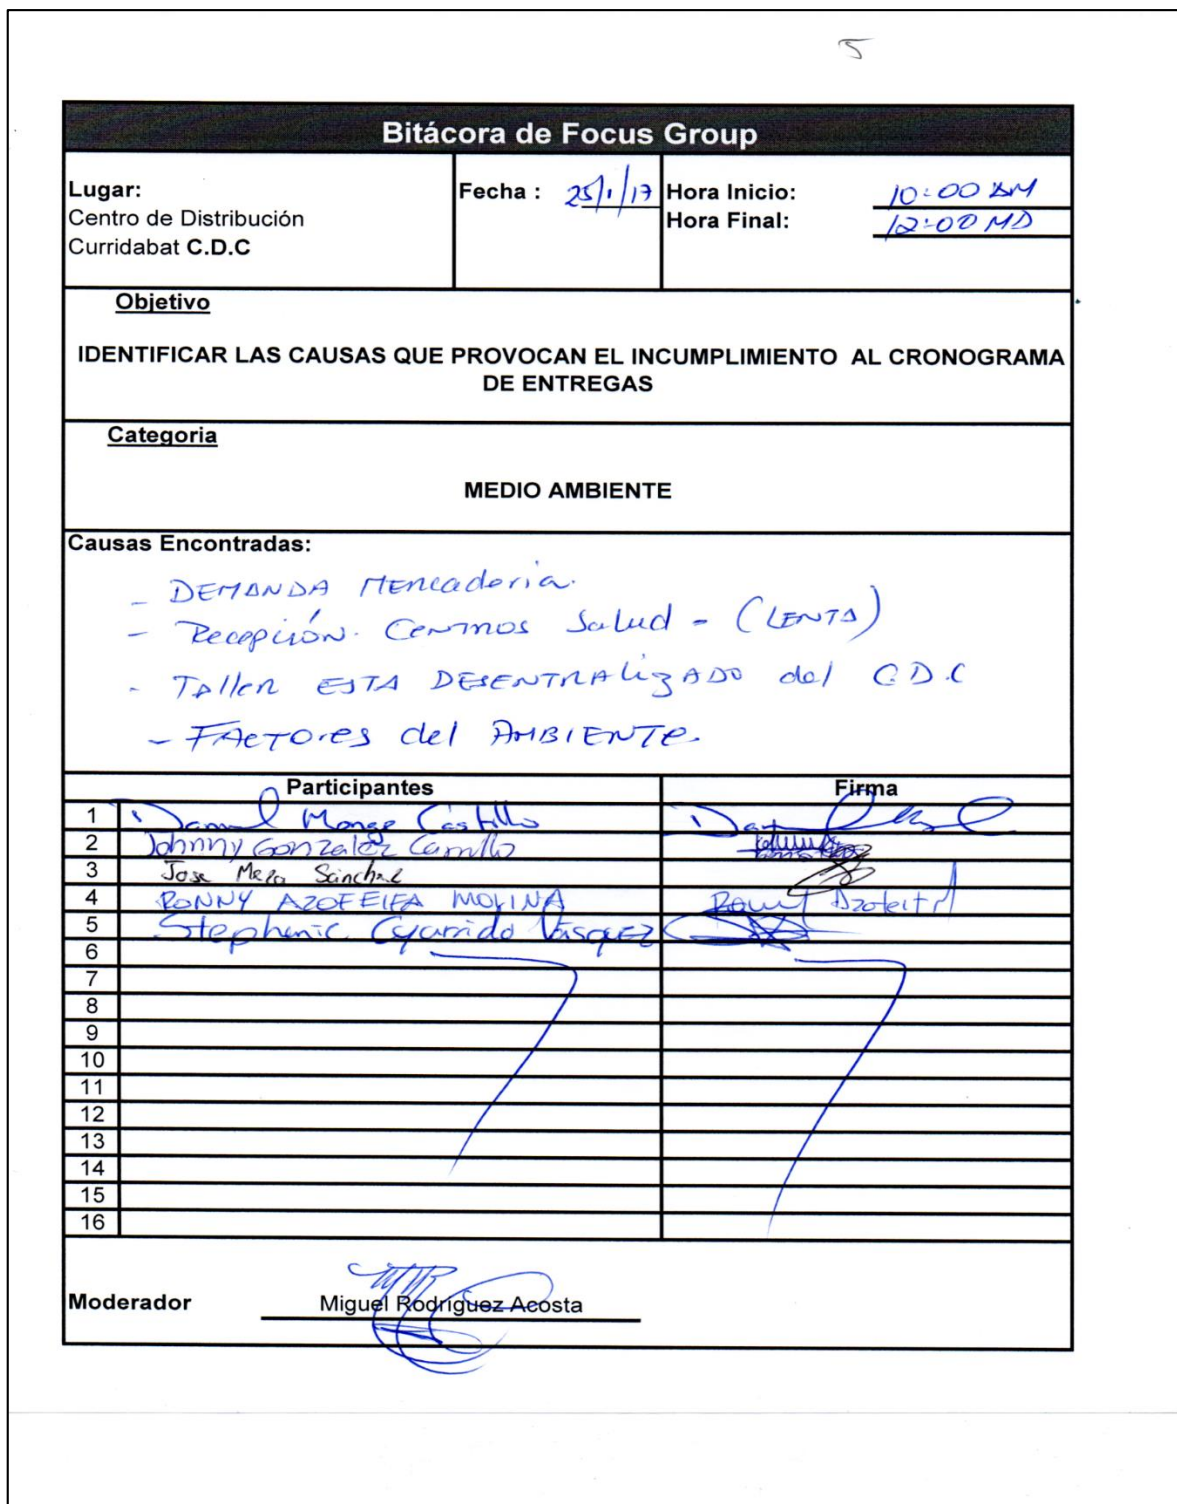 5
Bitácora de Focus Group
Lugar:
Centro de Distribución
Curridabat C.D.C
Fecha : 25/1/17
Hora Inicio: 10:00 AM
Hora Final: 12:00 MD
Objetivo
IDENTIFICAR LAS CAUSAS QUE PROVOCAN EL INCUMPLIMIENTO AL CRONOGRAMA
DE ENTREGAS
Categoria
MEDIO AMBIENTE
Causas Encontradas:
- DEMANDA Mercaderia.
- Recepción. Centros Salud - (LENTA)
- Taller ESTA DESENTRALizADO del C.D.C
- FACTORES del AMBIENTE.
Participantes Firma
1 Daniel Monge Castillo
2 Johnny Gonzalez Carrillo
3 Jose
4 RONNY AZOFEIFA MOLINA Ronny Azofeifa
5 Stephanie Garrido Vásquez
6
7
8
9
10
11
12
13
14
15
16
Moderador Miguel Rodríguez Acosta